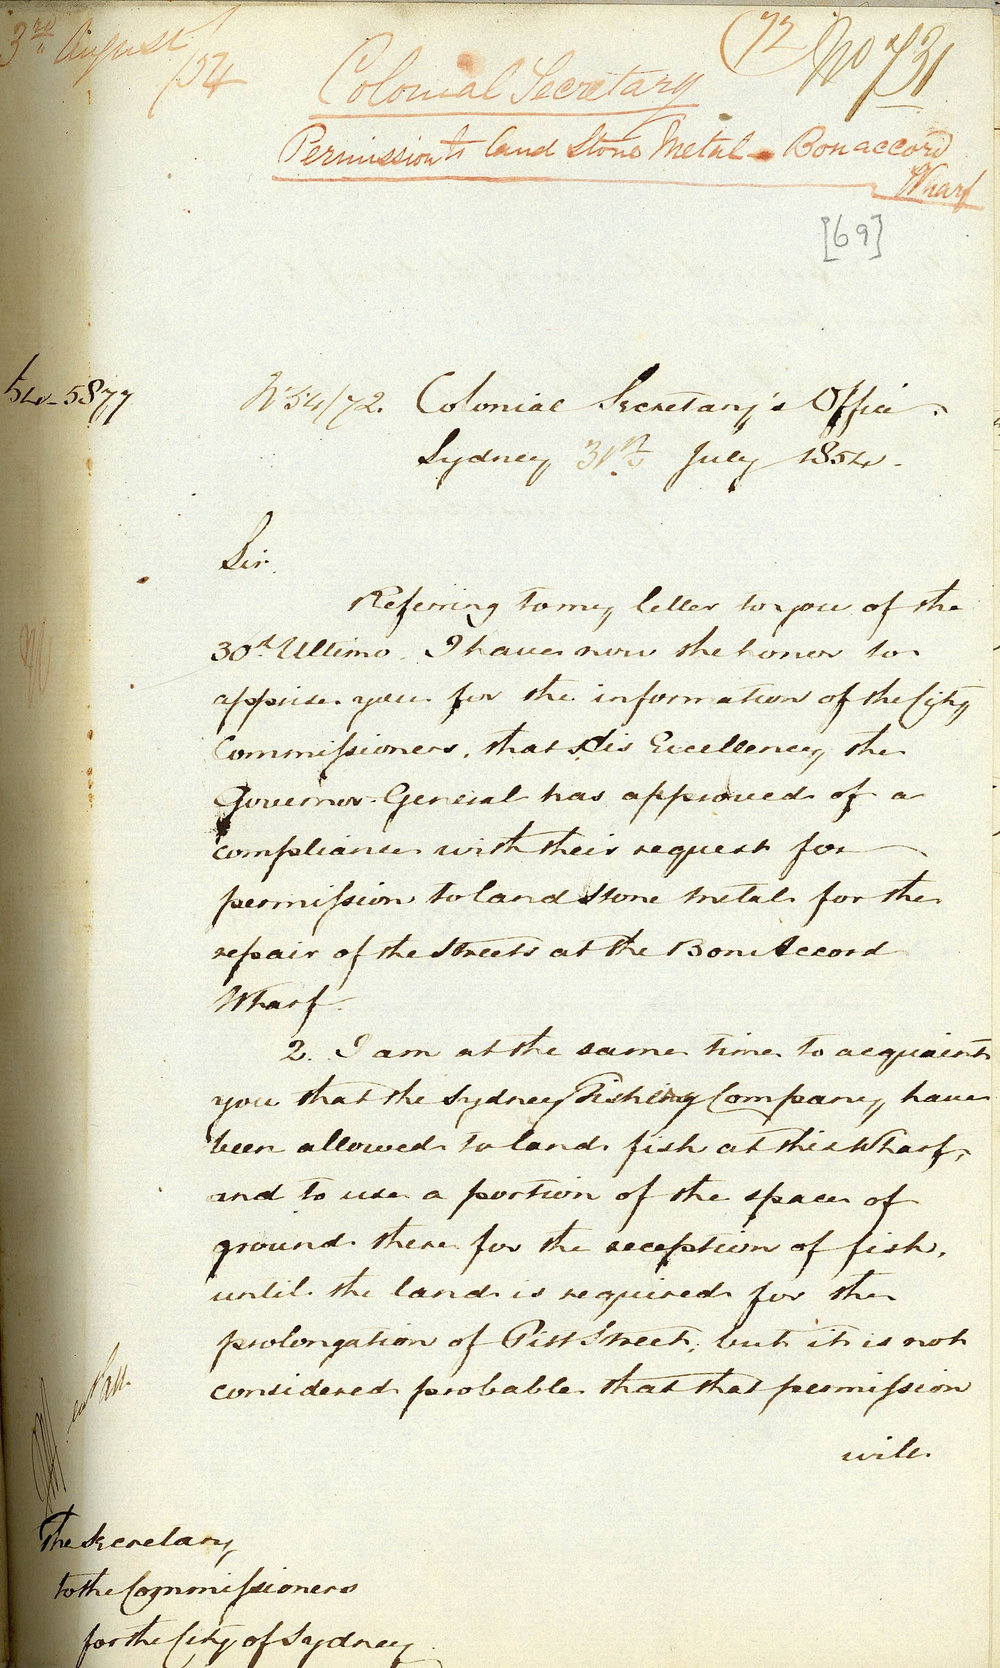 3rd August /54
(72 No 731
Colonial Secretary
Permission to land Stone Metal - Bon accord
Wharf
[69]
54-5877
No 54/72. Colonial Secretary's Office.
Sydney 31st July 1854.
Sir.
Referring to my letter to you of the
30th Ultimo. I have now the honor to
apprise you for the information of the City
Commissioners, that His Excellency the
Governor General has approved of a
compliance with their request for
permission to land Stone metal for the
repair of the Streets at the Bon Accord
Wharf.
2. I am at the same time to acquaint
you that the Sydney Fishing Company have
been allowed to land fish at this Wharf,
and to use a portion of the space of
ground there for the reception of fish,
until the land is required for the
prolongation of Pitt Street; but it is not
considered probable that that permission
will
The Secretary
to the Commissioners
for the City of Sydney